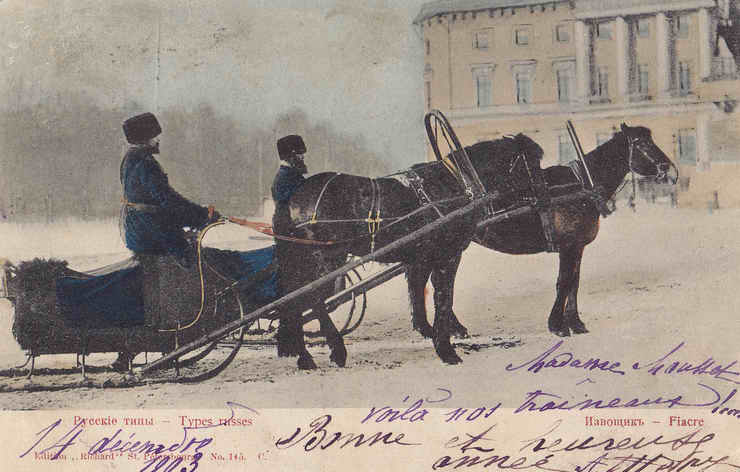 Madame Mousset
voilà nos traîneaux !
Русскіе типы – Types russes
Извощикъ – Fiacre
14 décembre
1903
Bonne et heureuse
année
Edition „Richard" St. Pétersbourg No. 145. C.